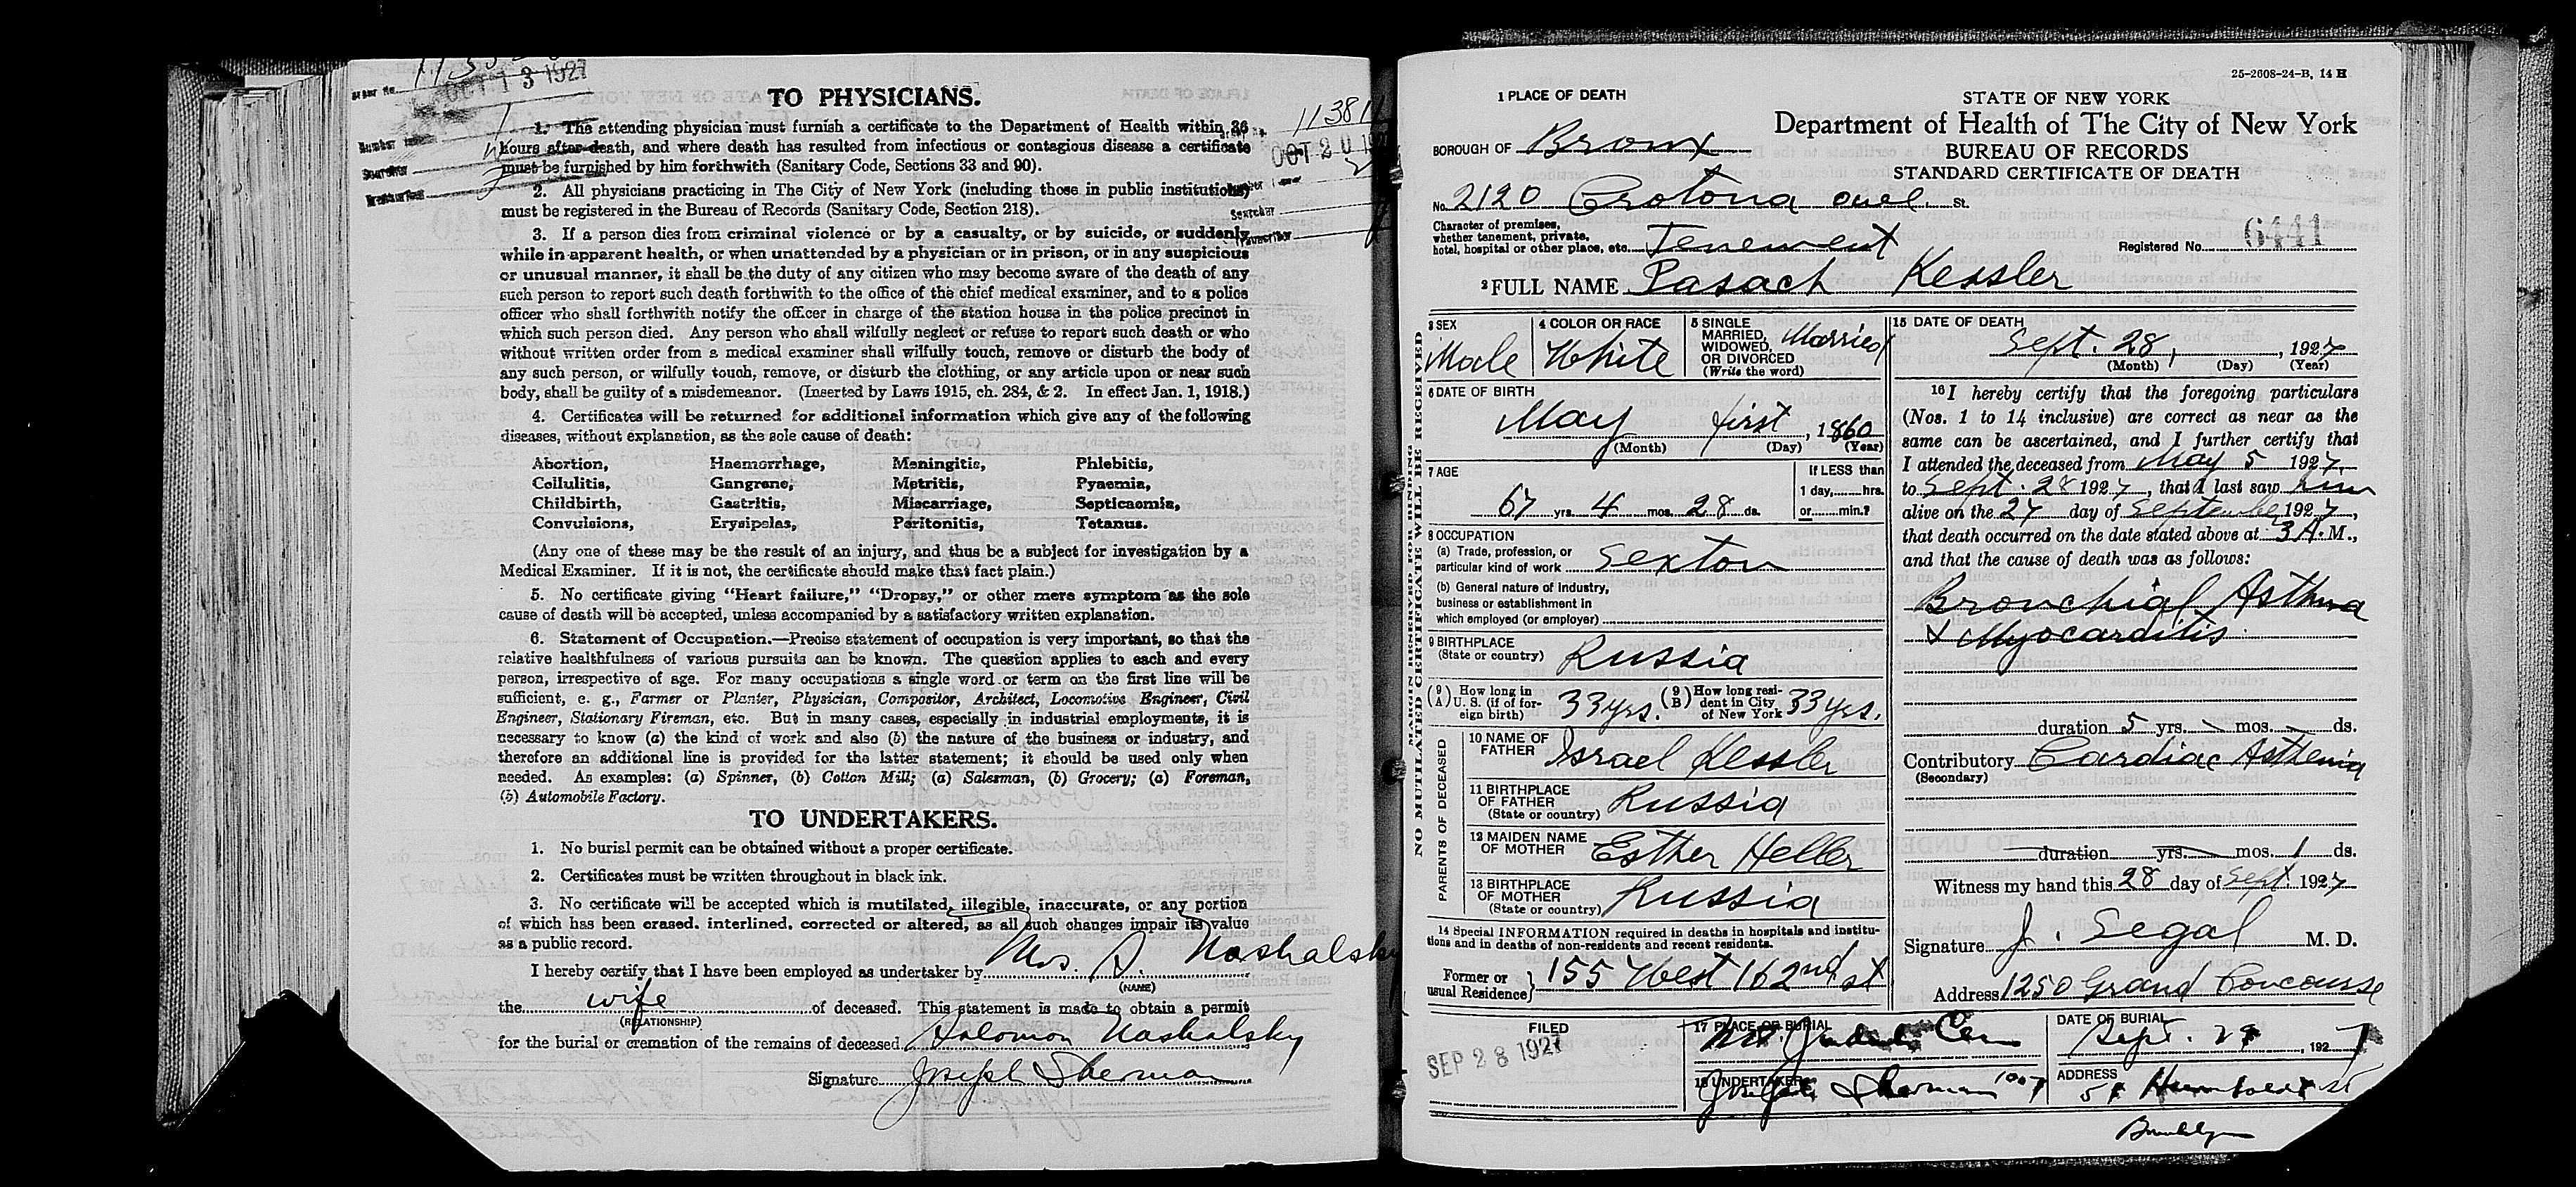 OCT 13 1927
TO PHYSICIANS.
1. The attending physician must furnish a certificate to the Department of Health within 36
hours after death, and where death has resulted from infectious or contagious disease a certificate
must be furnished by him forthwith (Sanitary Code, Sections 33 and 90).
2. All physicians practicing in The City of New York (including those in public institutions)
must be registered in the Bureau of Records (Sanitary Code, Section 218).
3. If a person dies from criminal violence or by a casualty, or by suicide, or suddenly
while in apparent health, or when unattended by a physician or in prison, or in any suspicious
or unusual manner, it shall be the duty of any citizen who may become aware of the death of any
such person to report such death forthwith to the office of the chief medical examiner, and to a police
officer who shall forthwith notify the officer in charge of the station house in the police precinct in
which such person died. Any person who shall wilfully neglect or refuse to report such death or who
without written order from a medical examiner shall wilfully touch, remove or disturb the body of
any such person, or wilfully touch, remove, or disturb the clothing, or any article upon or near such
body, shall be guilty of a misdemeanor. (Inserted by Laws 1915, ch. 284, & 2. In effect Jan. 1, 1918.)
4. Certificates will be returned for additional information which give any of the following
diseases, without explanation, as the sole cause of death:
Abortion, Haemorrhage, Meningitis, Phlebitis,
Cellulitis, Gangrene, Metritis, Pyaemia,
Childbirth, Gastritis, Miscarriage, Septicaemia,
Convulsions, Erysipelas, Peritonitis, Tetanus.
(Any one of these may be the result of an injury, and thus be a subject for investigation by a
Medical Examiner. If it is not, the certificate should make that fact plain.)
5. No certificate giving "Heart failure," "Dropsy," or other mere symptom as the sole
cause of death will be accepted, unless accompanied by a satisfactory written explanation.
6. Statement of Occupation.—Precise statement of occupation is very important, so that the
relative healthfulness of various pursuits can be known. The question applies to each and every
person, irrespective of age. For many occupations a single word or term on the first line will be
sufficient, e. g., Farmer or Planter, Physician, Compositor, Architect, Locomotive Engineer, Civil
Engineer, Stationary Fireman, etc. But in many cases, especially in industrial employments, it is
necessary to know (a) the kind of work and also (b) the nature of the business or industry, and
therefore an additional line is provided for the latter statement; it should be used only when
needed. As examples: (a) Spinner, (b) Cotton Mill; (a) Salesman, (b) Grocery; (a) Foreman,
(b) Automobile Factory.
TO UNDERTAKERS.
1. No burial permit can be obtained without a proper certificate.
2. Certificates must be written throughout in black ink.
3. No certificate will be accepted which is mutilated, illegible, inaccurate, or any portion
of which has been erased, interlined, corrected or altered, as all such changes impair its value
as a public record.
I hereby certify that I have been employed as undertaker by Mrs. S. Nashalsky
(NAME)
the wife of deceased. This statement is made to obtain a permit
(RELATIONSHIP)
for the burial or cremation of the remains of deceased Solomon Nashalsky
Signature Joseph Sherman
11381
OCT 20
Searcher
25-2608-24-B, 14 H
1 PLACE OF DEATH
STATE OF NEW YORK
Department of Health of The City of New York
BUREAU OF RECORDS
STANDARD CERTIFICATE OF DEATH
BOROUGH OF Bronx
No. 2120 Crotona ave St.
Character of premises,
whether tenement, private,
hotel, hospital or other place, etc. Tenement
Registered No. 6441
2 FULL NAME Pasach Kessler
MARGIN RESERVED FOR BINDING
NO MUTILATED CERTIFICATE WILL BE RECEIVED
3 SEX Male
4 COLOR OR RACE White
5 SINGLE
MARRIED,
WIDOWED,
OR DIVORCED
(Write the word) Married
6 DATE OF BIRTH
May first, 1860
(Month) (Day) (Year)
7 AGE
67 yrs. 4 mos. 28 ds.
If LESS than
1 day, hrs.
or min.?
8 OCCUPATION
(a) Trade, profession, or
particular kind of work Sexton
(b) General nature of Industry,
business or establishment in
which employed (or employer)
9 BIRTHPLACE
(State or country) Russia
(9 A) How long in
U. S. (if of for-
eign birth) 33 yrs.
(9 B) How long resi-
dent in City
of New York 33 yrs.
PARENTS OF DECEASED
10 NAME OF
FATHER Israel Kessler
11 BIRTHPLACE
OF FATHER
(State or country) Russia
12 MAIDEN NAME
OF MOTHER Esther Heller
13 BIRTHPLACE
OF MOTHER
(State or country) Russia
14 Special INFORMATION required in deaths in hospitals and institu-
tions and in deaths of non-residents and recent residents.
Former or
usual Residence } 155 West 162nd st
15 DATE OF DEATH
Sept. 28, 1927
(Month) (Day) (Year)
16 I hereby certify that the foregoing particulars
(Nos. 1 to 14 inclusive) are correct as near as the
same can be ascertained, and I further certify that
I attended the deceased from May 5 1927,
to Sept. 28 1927, that I last saw him
alive on the 27 day of September 1927,
that death occurred on the date stated above at 3 A. M.,
and that the cause of death was as follows:
Bronchial Asthma
& Myocarditis
duration 5 yrs. mos. ds.
Contributory Cardiac Asthenia
(Secondary)
duration yrs. mos. 1 ds.
Witness my hand this 28 day of Sept. 1927
Signature J. Segal M. D.
Address 1250 Grand Concourse
FILED
SEP 28 1927
17 PLACE OF BURIAL
Mt. Judah Cem
DATE OF BURIAL
Sept. 28, 1927
18 UNDERTAKER
Joseph Sherman
ADDRESS
Humboldt St
Brooklyn